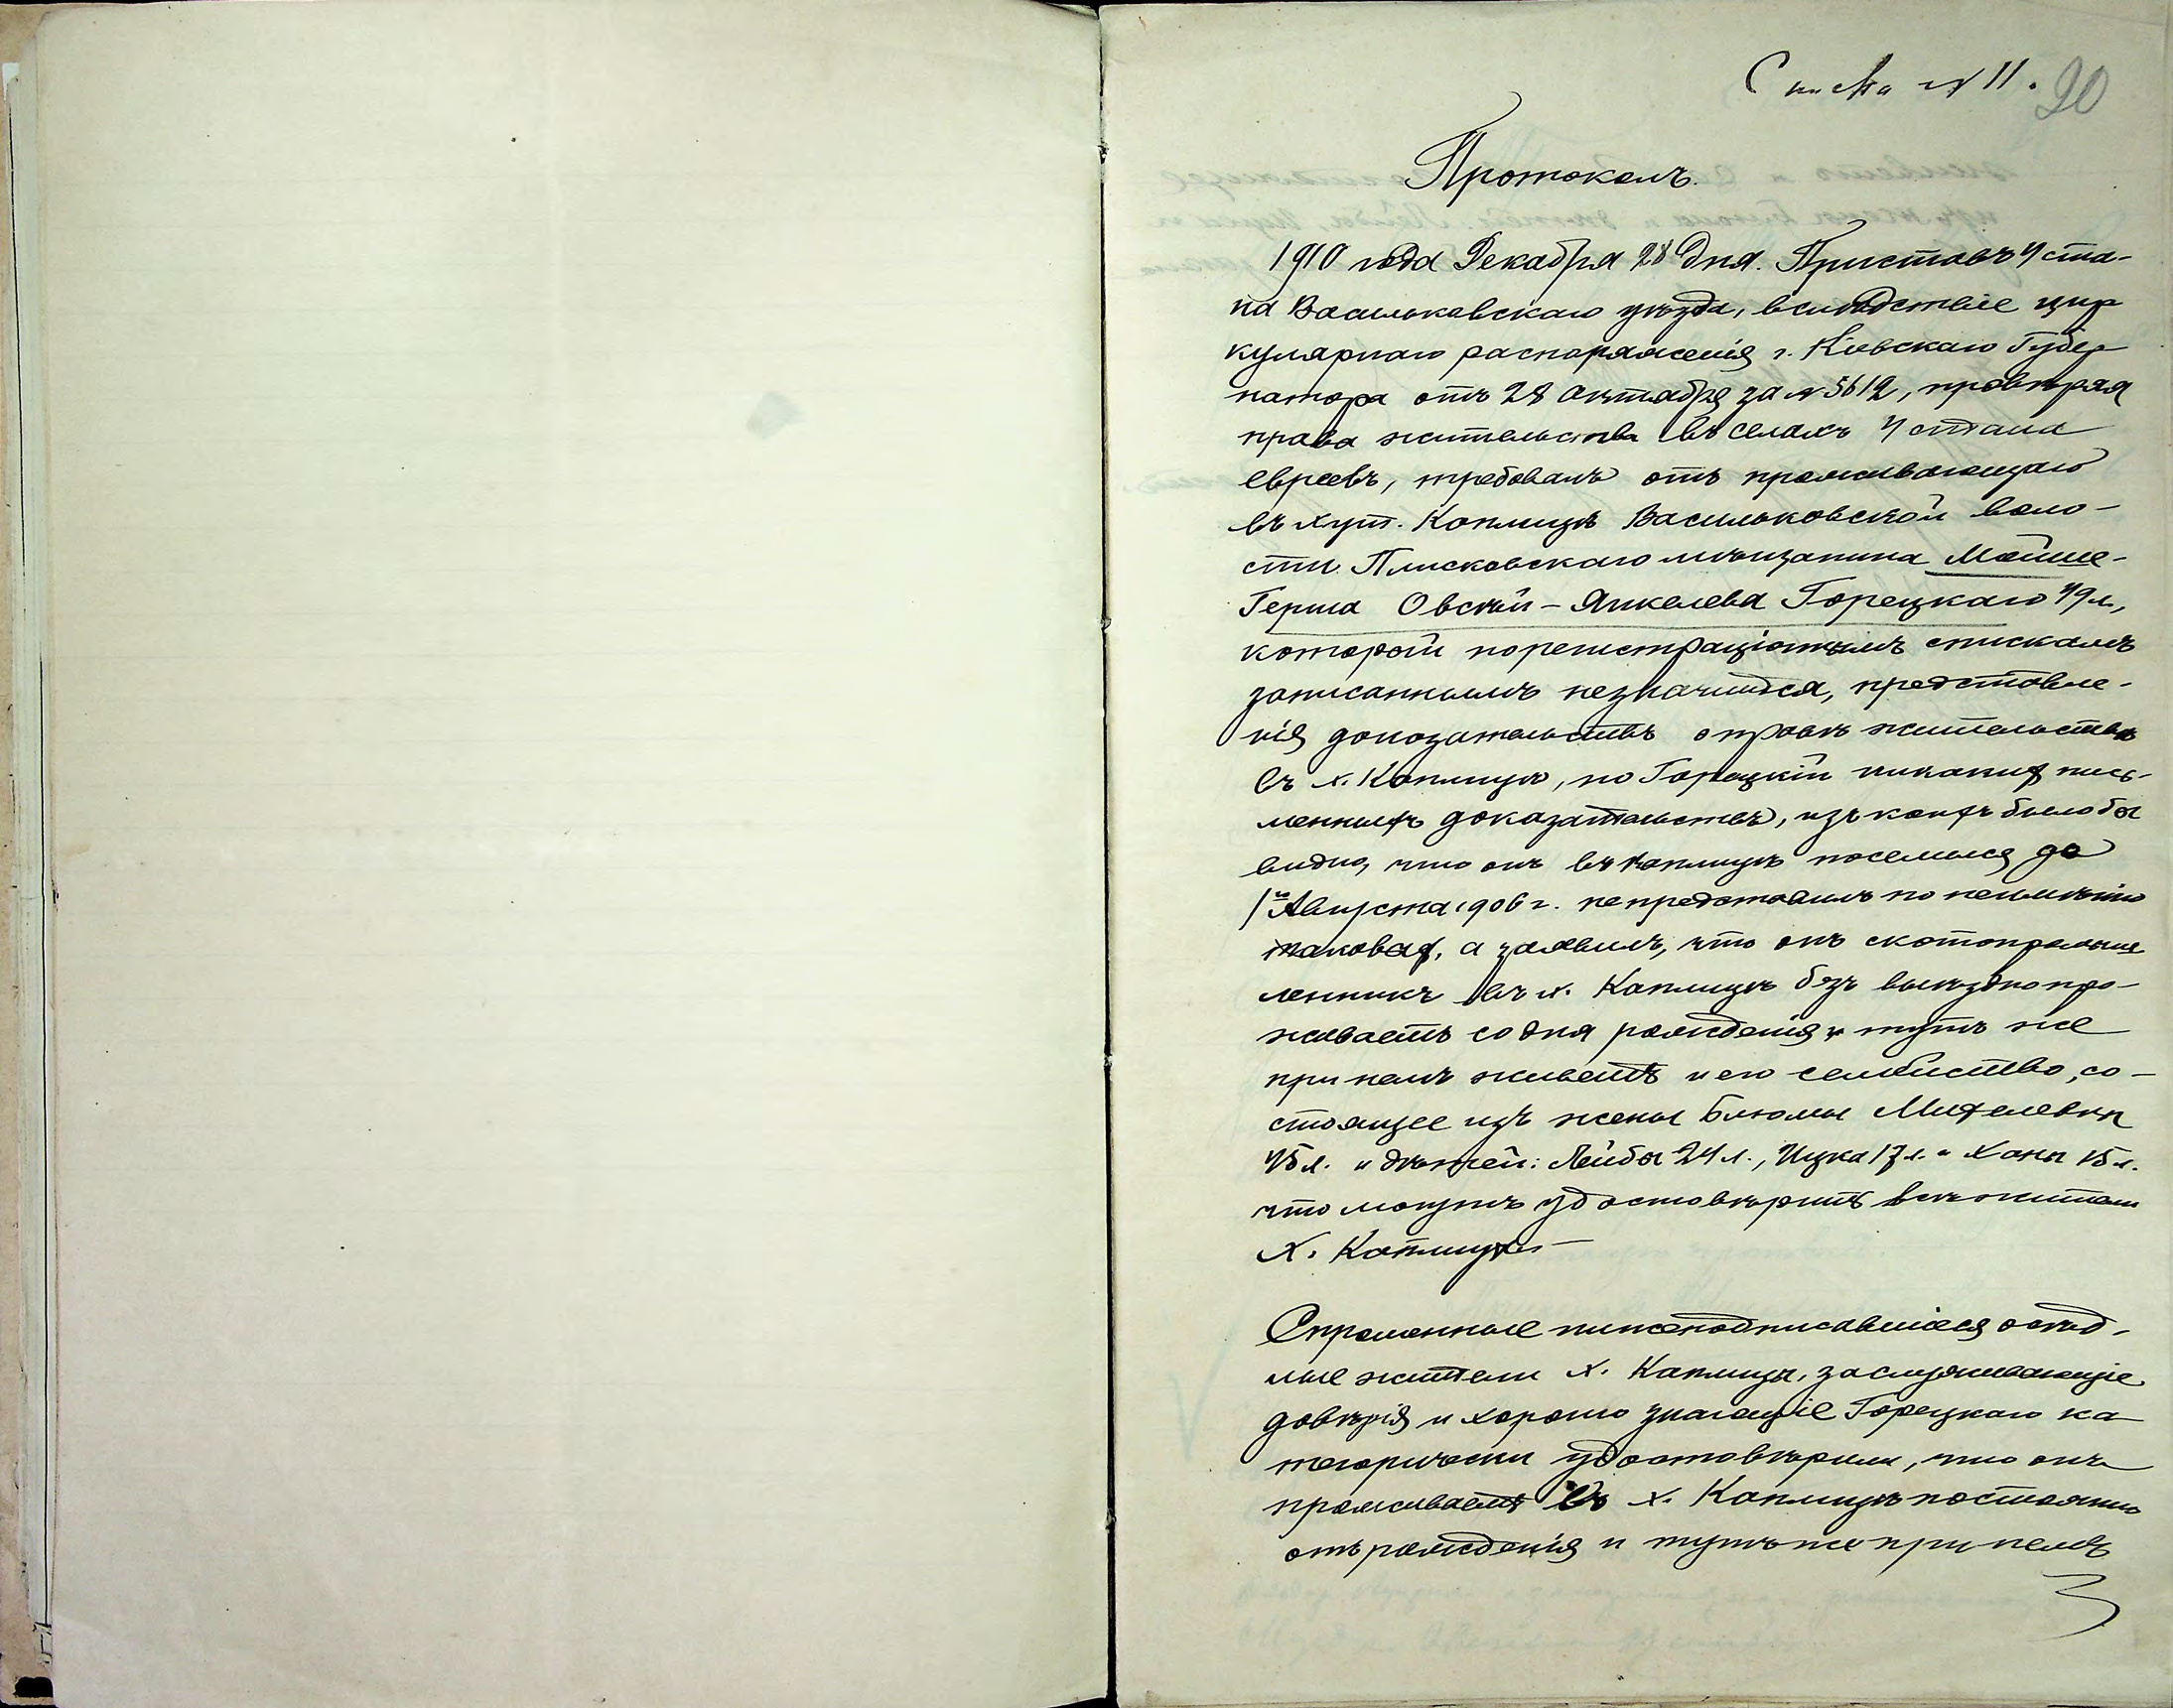 Списка № 11. 90
Протоколъ.
1910 года Декабря 28 дня. Приставъ 4 ста-
на Васильковскаго уѣзда, вслѣдствіе цир
кулярнаго распоряженія г. Кіевскаго Губер
натора отъ 28 октября за № 5612, провѣряя
права жительства въ селахъ 4 стана
евреевъ, требовалъ отъ проживающаго
въ хут. Каплицѣ Васильковской воло-
сти Плисковскаго мѣщанина Мойше-
Герша Овсѣй-Янкелева Горецкаго 49 л.,
который по регистраціоннымъ спискамъ
записаннымъ незначится, представле-
нія доказательствъ о правѣ жительства
въ х. Каплицѣ, но Горецкій никакихъ пись-
менныхъ доказательствъ, изъ коихъ было бы
видно, что онъ въ Каплицѣ поселился до
1го Августа 1906 г. непредставилъ по неимѣнію
таковыхъ, а заявилъ, что онъ скотопромыш
ленникъ въ х. Каплицѣ безъ выѣздно про-
живаетъ со дня рожденія и тутъ же
при немъ живетъ и его семейство, со-
стоящее изъ жены Блюмы Михелевны
45 л. и дѣтей: Лейбы 24 л., Ицка 17 л. и Ханы 15 л.
что могутъ удостовѣрить всѣ жители
х. Каплицы
Спрошенные нижеподписавшіеся осѣд-
лые жители х. Каплицы, заслуживающіе
довѣрія и хорошо знающіе Горецкаго ка
тегорически удостовѣрили, что онъ
проживаетъ въ х. Каплицѣ постоянно
отъ рожденія и тутъ же при немъ